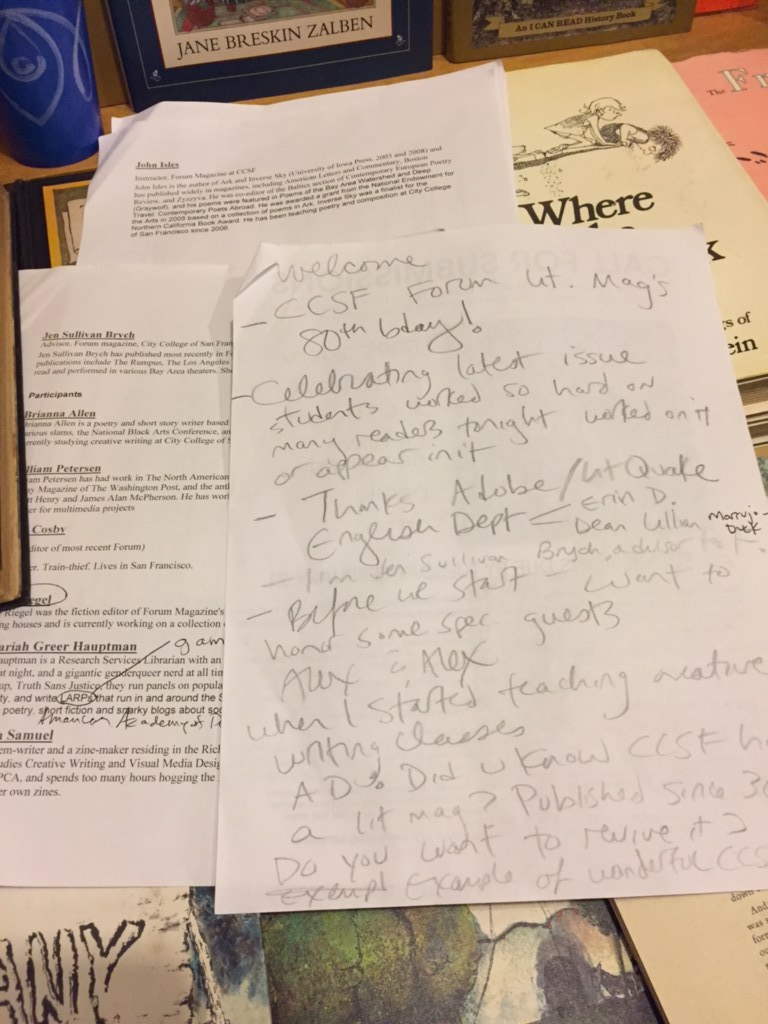 JANE BRESKIN ZALBEN
An I CAN READ History Book
The
Where
John Isles
Instructor, Forum Magazine at CCSF
John Isles is the author of Ark and Inverse Sky (University of Iowa Press, 2003 and 2008) and
has published widely in magazines, including American Letters and Commentary, Boston
Review, and Zyzzyva. He was co-editor of the Baltics section of Contemporary European Poetry
(Graywolf), and his poems were featured in Poems of the Bay Area Watershed and Deep
Travel: Contemporary Poets Abroad. He was awarded a grant from the National Endowment for
the Arts in 2008 based on a collection of poems in Ark. Inverse Sky was a finalist for the
Northern California Book Award. He has been teaching poetry and composition at City College
of San Francisco since 2006.
Jen Sullivan Brych
Advisor, Forum magazine, City College of San Fran
Jen Sullivan Brych has published most recently in F
publications include The Rumpus, The Los Angeles
read and performed in various Bay Area theaters. Sh
Participants
Brianna Allen
Brianna Allen is a poetry and short story writer based
various slams, the National Black Arts Conference, an
rently studying creative writing at City College of S
lliam Petersen
m Petersen has had work in The North American
y Magazine of The Washington Post, and the ant
t Henry and James Alan McPherson. He has wor
er for multimedia projects
Cosby
ditor of most recent Forum)
er. Train-thief. Lives in San Francisco.
egel
Riegel was the fiction editor of Forum Magazine's
ng houses and is currently working on a collection
gam
ariah Greer Hauptman
auptman is a Research Services Librarian with an
at night, and a gigantic genderqueer nerd at all tim
up, Truth Sans Justice, they run panels on popula
ty, and write LARPs that run in and around the S
poetry, short fiction and snarky blogs about soc
American Academy of
n Samuel
em-writer and a zine-maker residing in the Rich
udies Creative Writing and Visual Media Desig
PCA, and spends too many hours hogging the
er own zines.
Welcome
- CCSF Forum Lit. Mag's
80th bday!
- Celebrating latest issue
students worked so hard on
many readers tonight worked on it
or appear in it
- Thanks Adobe/LitQuake
English Dept < Erin D.
Dean Lillian Marrujo-
Duck
- I'm Jen Sullivan Brych, advisor
- Before we start - want to
honor some spec guests
Alex & Alex
When I started teaching creative
writing classes
AD: Did u know CCSF h
a lit mag? Published since 30
Do you want to revive it?
Exempl Example of wonderful CCS
s of
ein
ANY